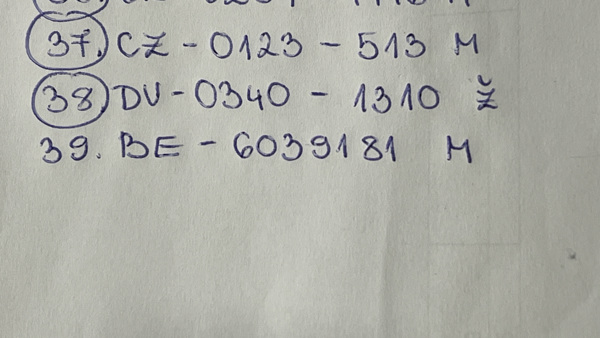 37. CZ - 0123 - 513 M
38 DV - 0340 - 1310 Ž
39. BE - 6039181 M